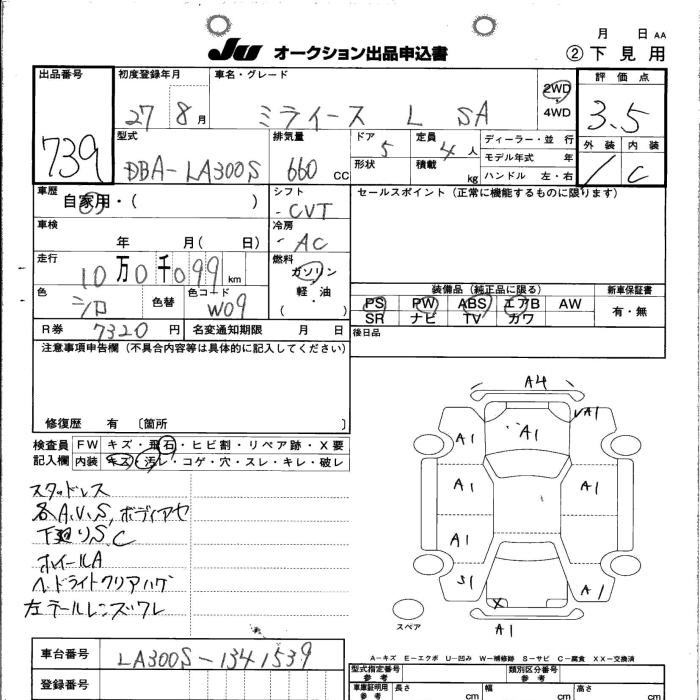 月 日 AA
JU オークション出品申込書 ②下見用
出品番号 初度登録年月 車名・グレード 2WD 4WD 評価点
739 27 8月 ミライース L SA 3.5
型式 排気量 ドア 定員 ディーラー・並行 外装 内装
DBA-LA300S 660 CC 5 4人 モデル年式 年
形状 積載 kg ハンドル 左・右 C
車歴 自家用・( ) シフト セールスポイント(正常に機能するものに限ります)
-CVT
車検 年 月( 日) 冷房
-AC
走行 10万0千099km 燃料 ガソリン 軽・油 ( )
装備品(純正品に限る) 新車保証書
色 シロ 色替 色コード W09 PS PW ABS エアB AW 有・無
SR ナビ TV カワ
R券 7320円 名変通知期限 月 日 後日品
注意事項申告欄(不具合内容等は具体的に記入してください)
修復歴 有 〔箇所 〕
検査員 FW キズ・飛石・ヒビ割・リペア跡・X要
記入欄 内装 キズ・汚レ・コゲ・穴・スレ・キレ・破レ
スタッドレス
各A.U.S,ボディアセ
下廻りS.C
ホイールA
ヘッドライトクリアハゲ
左テールレンズワレ
A4
A1
A1
A1
A1
A1
A1
S1
A1
X
A1
スペア
A-キズ E-エクボ U-凹み W-補修跡 S-サビ C-腐食 XX-交換済
車台番号 LA300S-1341539
登録番号
型式指定番号 参考 類別区分番号 参考
車庫証明用 参考 長さ cm 幅 cm 高さ cm